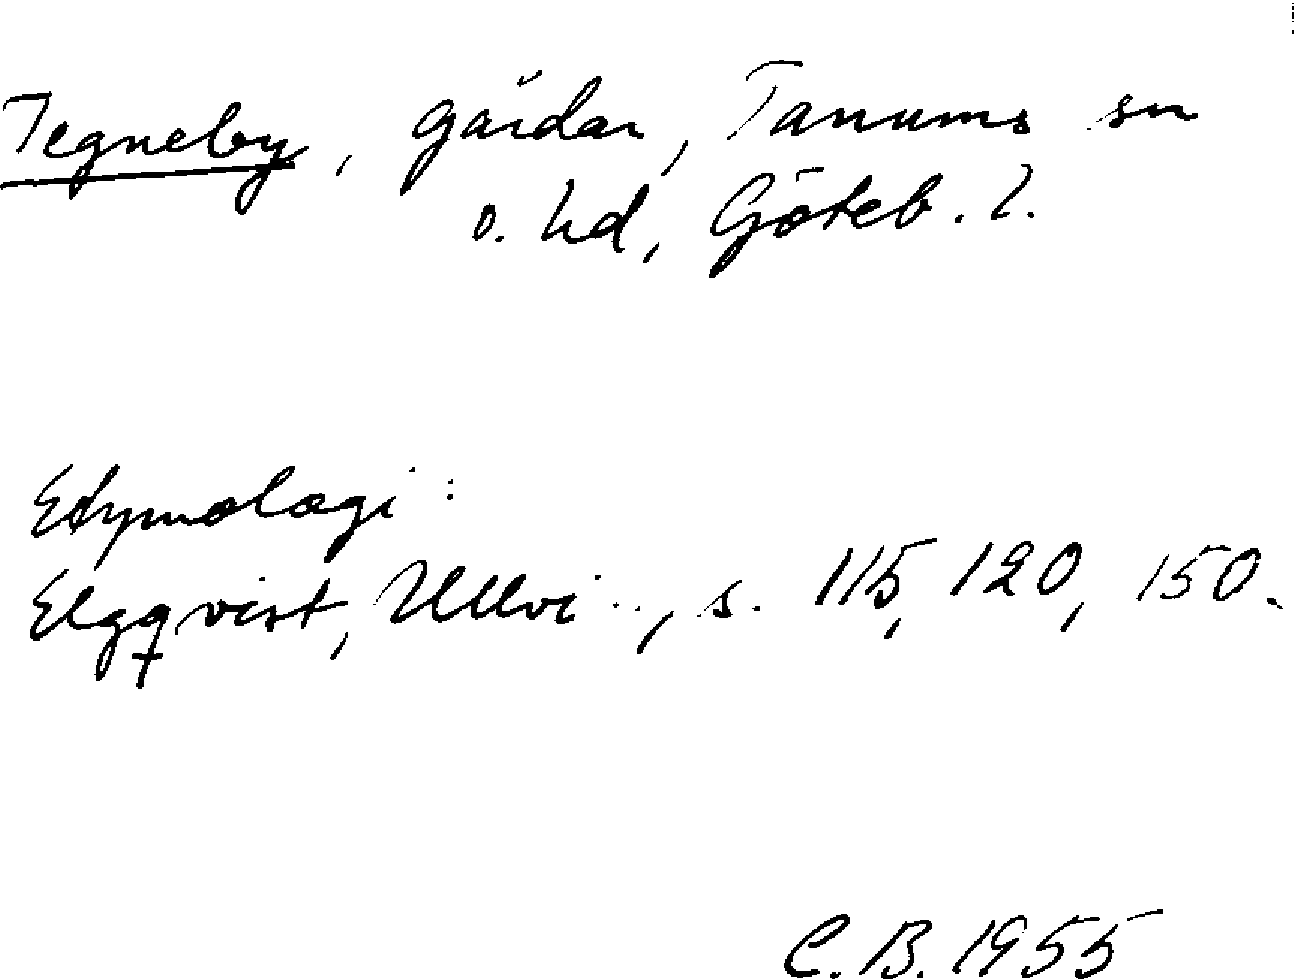 Tegneby, gårdar, Tanums sn
o. hd, Göteb. l.
Etymologi:
Elgqvist, Ullvi..., s. 115, 120, 150.
C.B. 1955